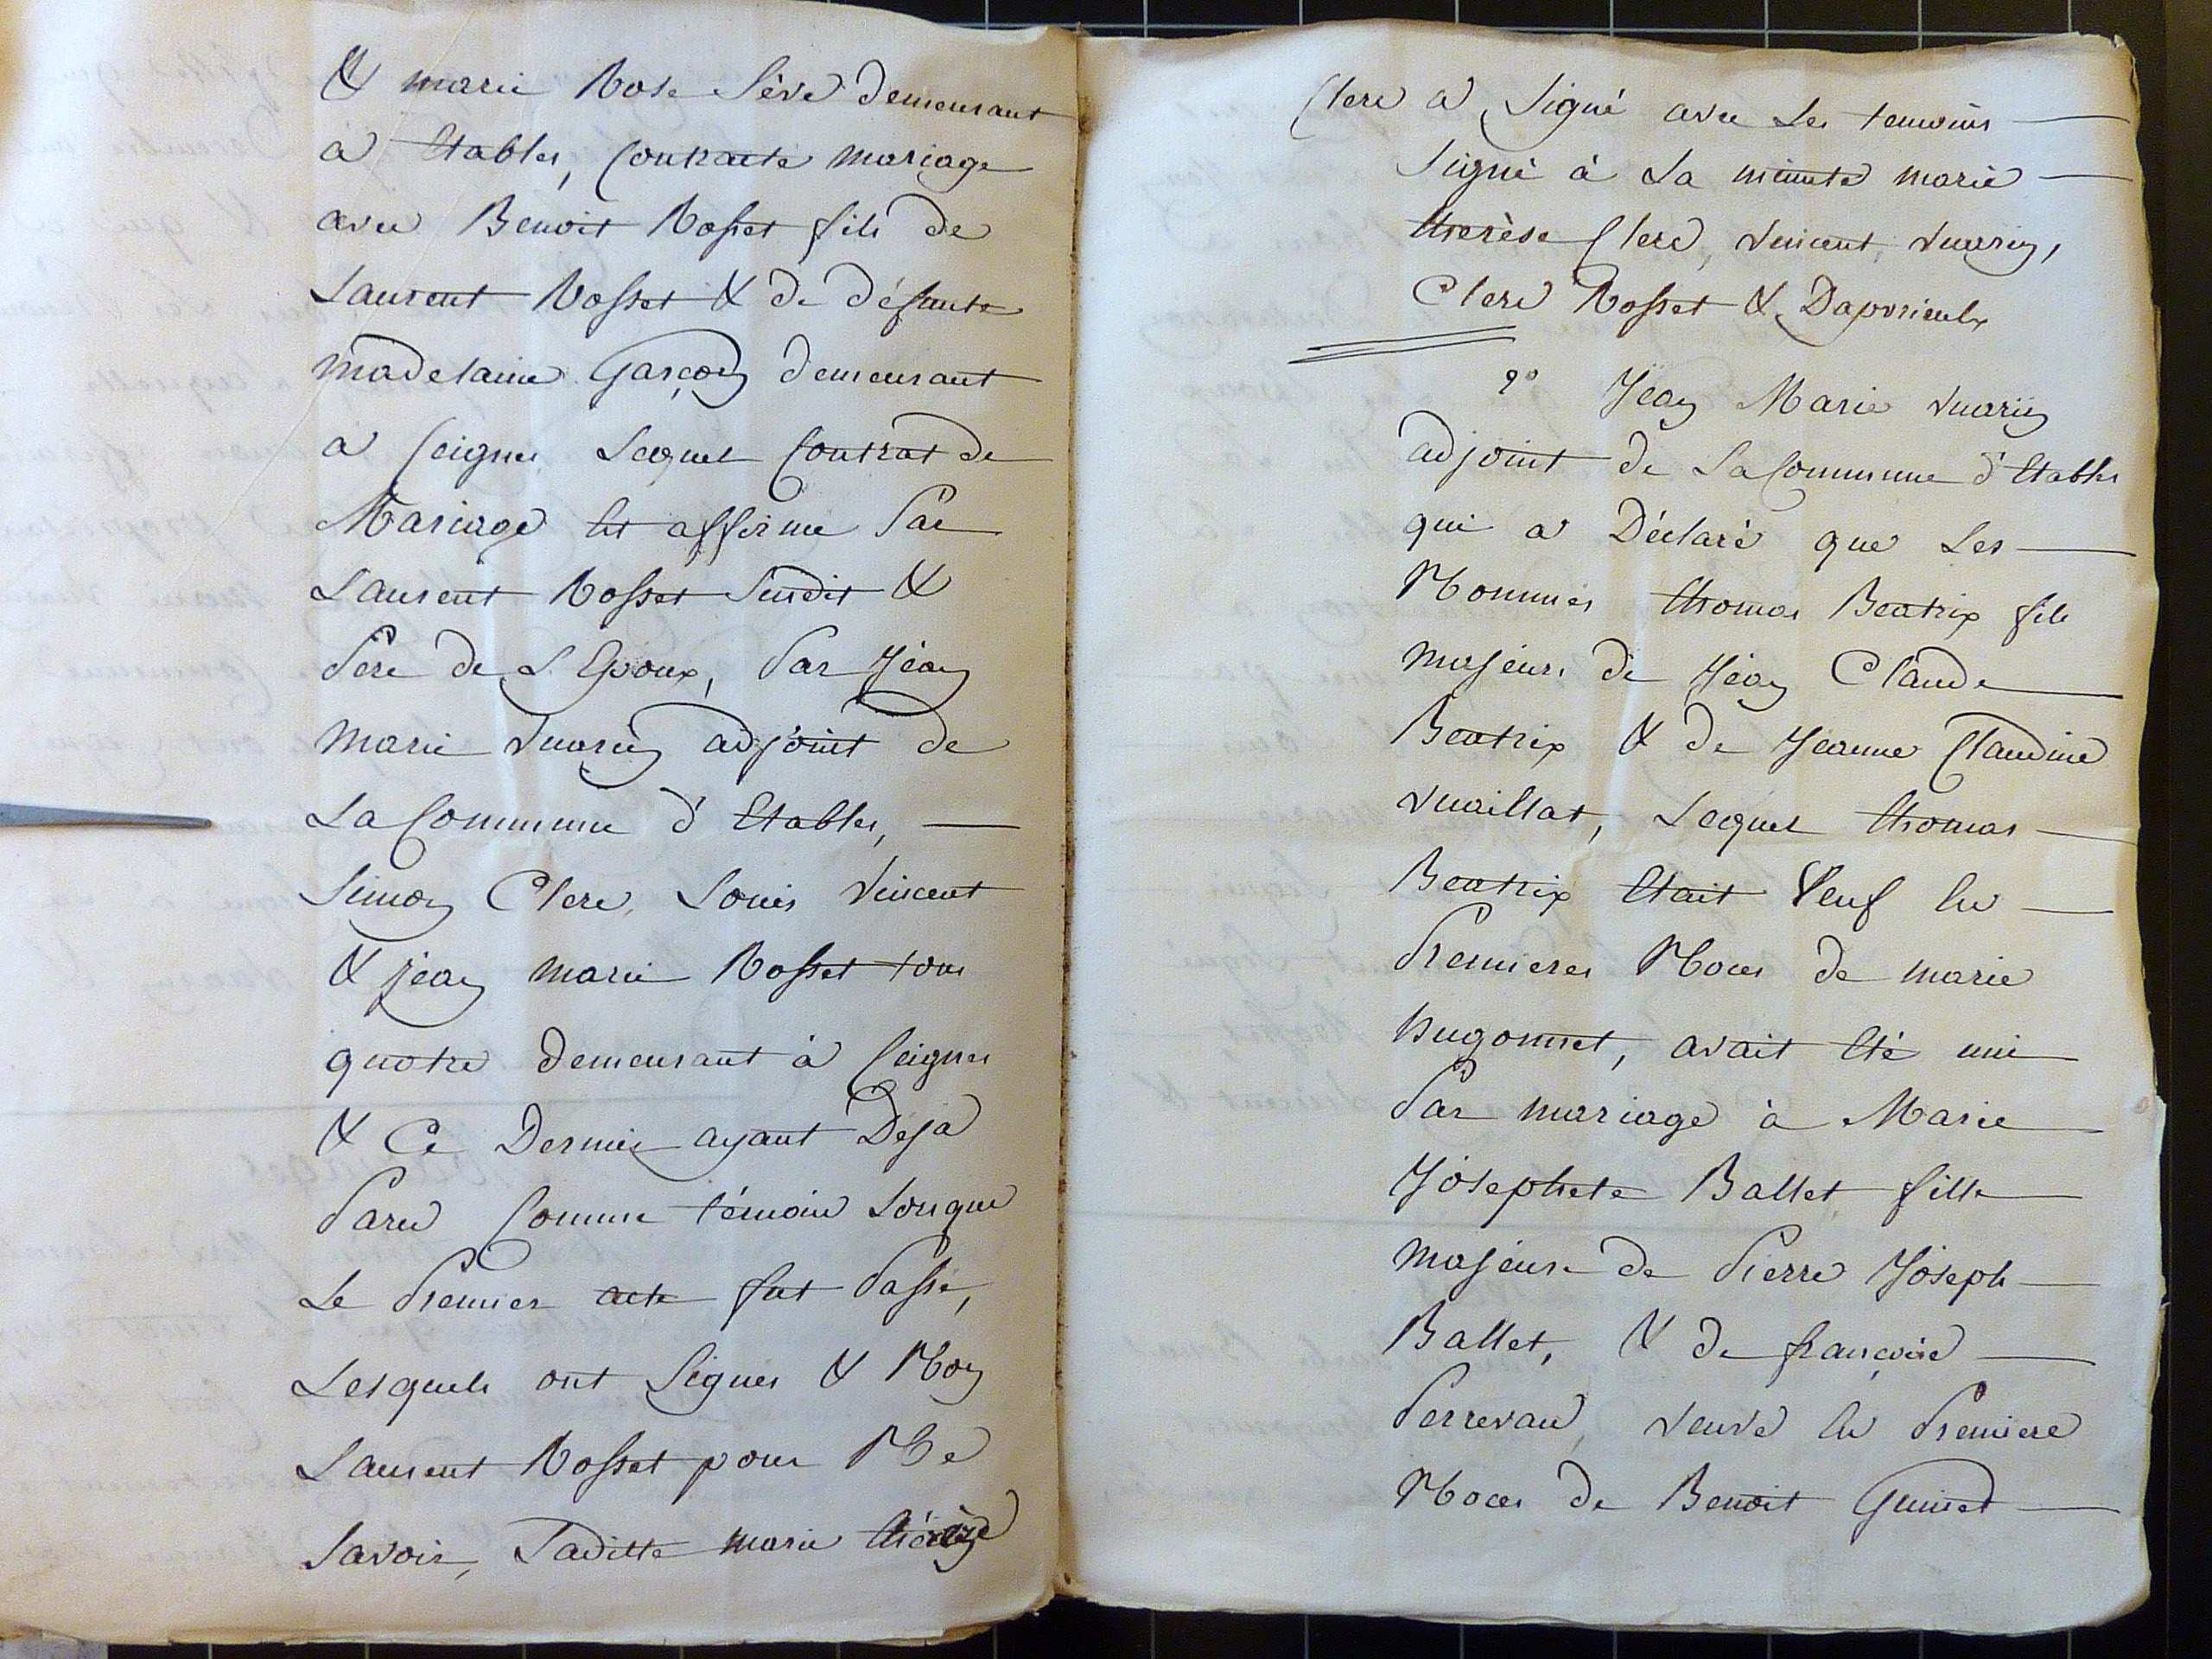 & marie Rose Sève demeurant
a Etables, Contracta mariage
avec Benoit Rosset fils de
Laurent Rosset & de défunte
madelaine Garçon demeurant
a Ceignes Lequel Contrat de
Mariage Est affirmé Par
Laurent Rosset Susdit &
Pere de L'Epoux, Par Jéan
marie Juarin adjoint de
La Commune d'Etables, —
Simon Clerc, Louis Vincent
& jean marie Rosset tous
quatre demeurant à Ceignes
& Ce Dernier ayant Deja
Paru Comme témoin Lorsque
Le Premier acte fut Passé,
Lesquels ont Signés & Non
Laurent Rosset pour Ne
Savoir, Laditte marie thérèze
Clerc a Signé avec Les temoins —
Signé à La minute marie —
therèse Clerc, Vincent, Juarin,
Clerc Rosset &
2° Jean Marie Juarin
adjoint de La Commune d'Etables
qui a Déclaré que Les —
Nommés thomas Beatrix fils
majeurs de Jéan Claude
Beatrix & de Jeanne Claudine
Juaillat, Lequel thomas —
Beatrix Etait Veuf En —
Premieres Noces de marie
hugonnet, avait Eté uni
Par mariage à Marie
Josephete Ballet fille
majeure de Pierre Joseph —
Ballet, & de françoise —
Perrevau, veuve En Premiere
Noces de Benoit Guinet —